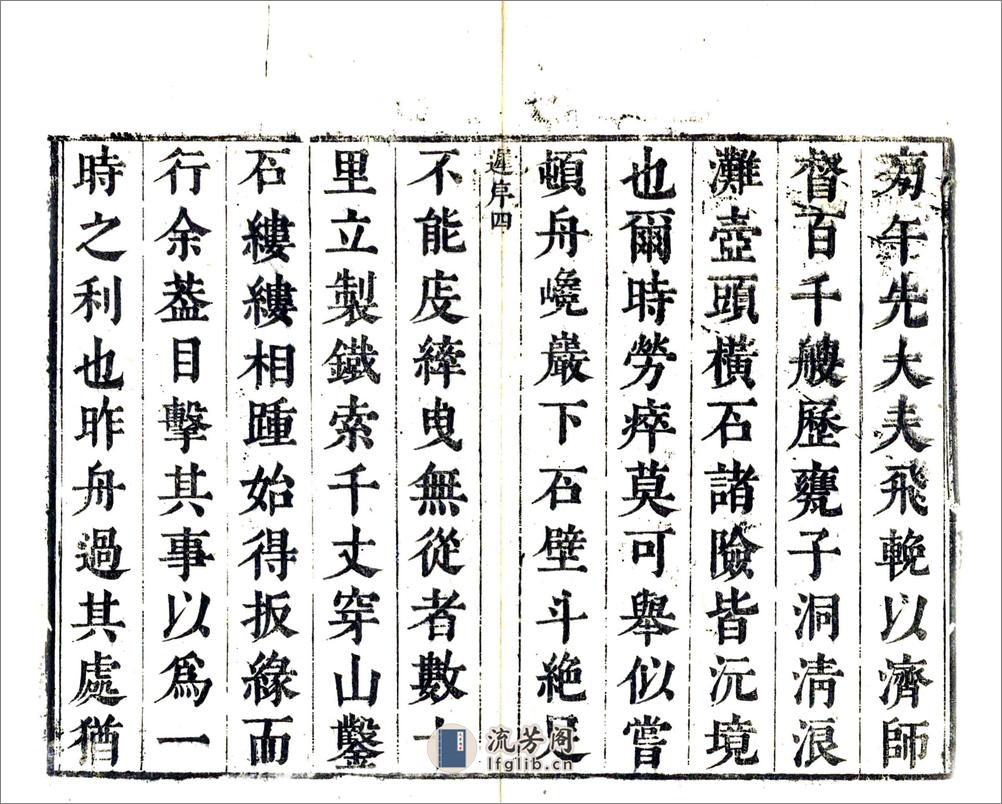 午先大夫飛輓以濟師
督百千艘歷甕子洞淸浪
灘壺頭橫石諸險皆沅境
也爾時勞瘁莫可舉似嘗
頓舟巉巖下石壁斗絶足
遲序四
不能庋縴曳無從者數十
里立製鐵索千丈穿山鑿
石縷縷相踵始得扳緣而
行余葢目擊其事以爲一
時之利也昨舟過其處猶
流芳阁
lfglib.cn